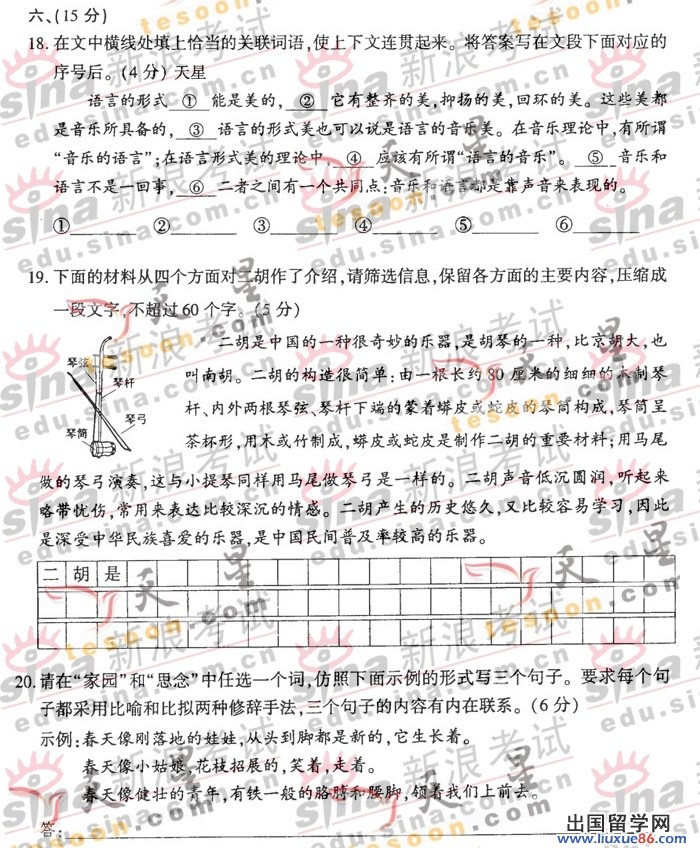 六、(15 分)
18. 在文中横线处填上恰当的关联词语,使上下文连贯起来。将答案写在文段下面对应的
序号后。(4 分) 天星
语言的形式 ① 能是美的, ② 它有整齐的美,抑扬的美,回环的美。这些美都
是音乐所具备的, ③ 语言的形式美也可以说是语言的音乐美。在音乐理论中,有所谓
“音乐的语言”;在语言形式美的理论中, ④ 应该有所谓“语言的音乐”。 ⑤ 音乐和
语言不是一回事, ⑥ 二者之间有一个共同点:音乐和语言都是靠声音来表现的。
①________ ②________ ③________ ④________ ⑤________ ⑥________
19. 下面的材料从四个方面对二胡作了介绍,请筛选信息,保留各方面的主要内容,压缩成
一段文字,不超过 60 个字。(5 分)
琴弦
琴杆
琴弓
琴筒
二胡是中国的一种很奇妙的乐器,是胡琴的一种,比京胡大,也
叫南胡。二胡的构造很简单:由一根长约 80 厘米的细细的木制琴
杆、内外两根琴弦、琴杆下端的蒙着蟒皮或蛇皮的琴筒构成,琴筒呈
茶杯形,用木或竹制成,蟒皮或蛇皮是制作二胡的重要材料;用马尾
做的琴弓演奏,这与小提琴同样用马尾做琴弓是一样的。二胡声音低沉圆润,听起来
略带忧伤,常用来表达比较深沉的情感。二胡产生的历史悠久,又比较容易学习,因此
是深受中华民族喜爱的乐器,是中国民间普及率较高的乐器。
二胡是
20. 请在“家园”和“思念”中任选一个词,仿照下面示例的形式写三个句子。要求每个句
子都采用比喻和比拟两种修辞手法,三个句子的内容有内在联系。(6 分)
示例:春天像刚落地的娃娃,从头到脚都是新的,它生长着。
春天像小姑娘,花枝招展的,笑着,走着。
春天像健壮的青年,有铁一般的胳膊和腰脚,领着我们上前去。
答:
出国留学网
www.liuxue86.com
sina 新浪考试
edu.sina.com.cn
天星
tesoon.com